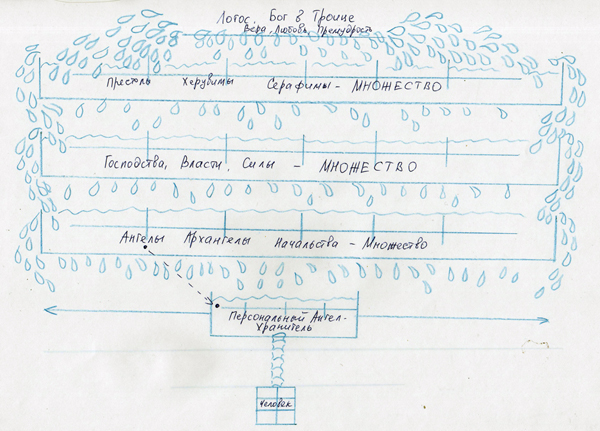 Логос, Бог в Троице
Вера, Любовь, Премудрость
Престолы Херувимы Серафимы - МНОЖЕСТВО
Господства, Власти, Силы - МНОЖЕСТВО
Ангелы Архангелы Начальства - Множество
Персональный Ангел-
Хранитель
Человек